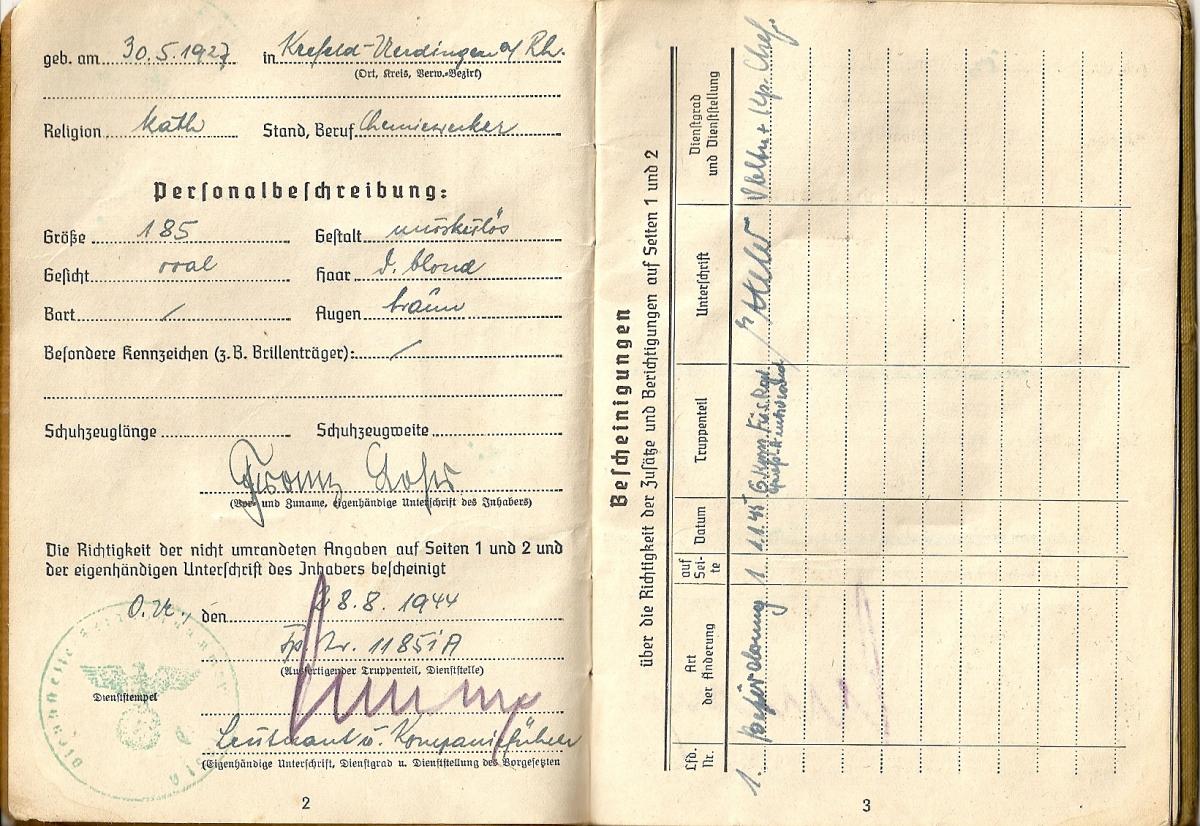 geb. am 30.5.1927 in Krefeld-Uerdingen a/ Rh.
(Ort, Kreis, Verw.-Bezirk)
Religion kath Stand, Beruf Chemiewerker
Personalbeschreibung:
Größe 185 Gestalt muskulös
Gesicht oval Haar d. blond
Bart / Augen braun
Besondere Kennzeichen (z.B. Brillenträger): /
Schuhzeuglänge Schuhzeugweite
Franz
(Vor- und Zuname, eigenhändige Unterschrift des Inhabers)
Die Richtigkeit der nicht umrandeten Angaben auf Seiten 1 und 2 und
der eigenhändigen Unterschrift des Inhabers bescheinigt
O.U., den 28.8.1944
Fp. Nr. 11851A
(Ausfertigender Truppenteil, Dienststelle)
Dienststempel
Leutnant u. Kompanieführer
(Eigenhändige Unterschrift, Dienstgrad u. Dienststellung des Vorgesetzten
2
Bescheinigungen
über die Richtigkeit der Zusätze und Berichtigungen auf Seiten 1 und 2
Lfd. Nr.
Art der Änderung
auf Seite
Datum
Truppenteil
Unterschrift
Dienstgrad und Dienststellung
1. Beförderung 1 1.1.45 6. Komp. Füs. Regt. Oblt. u. Kp. Chef.
3